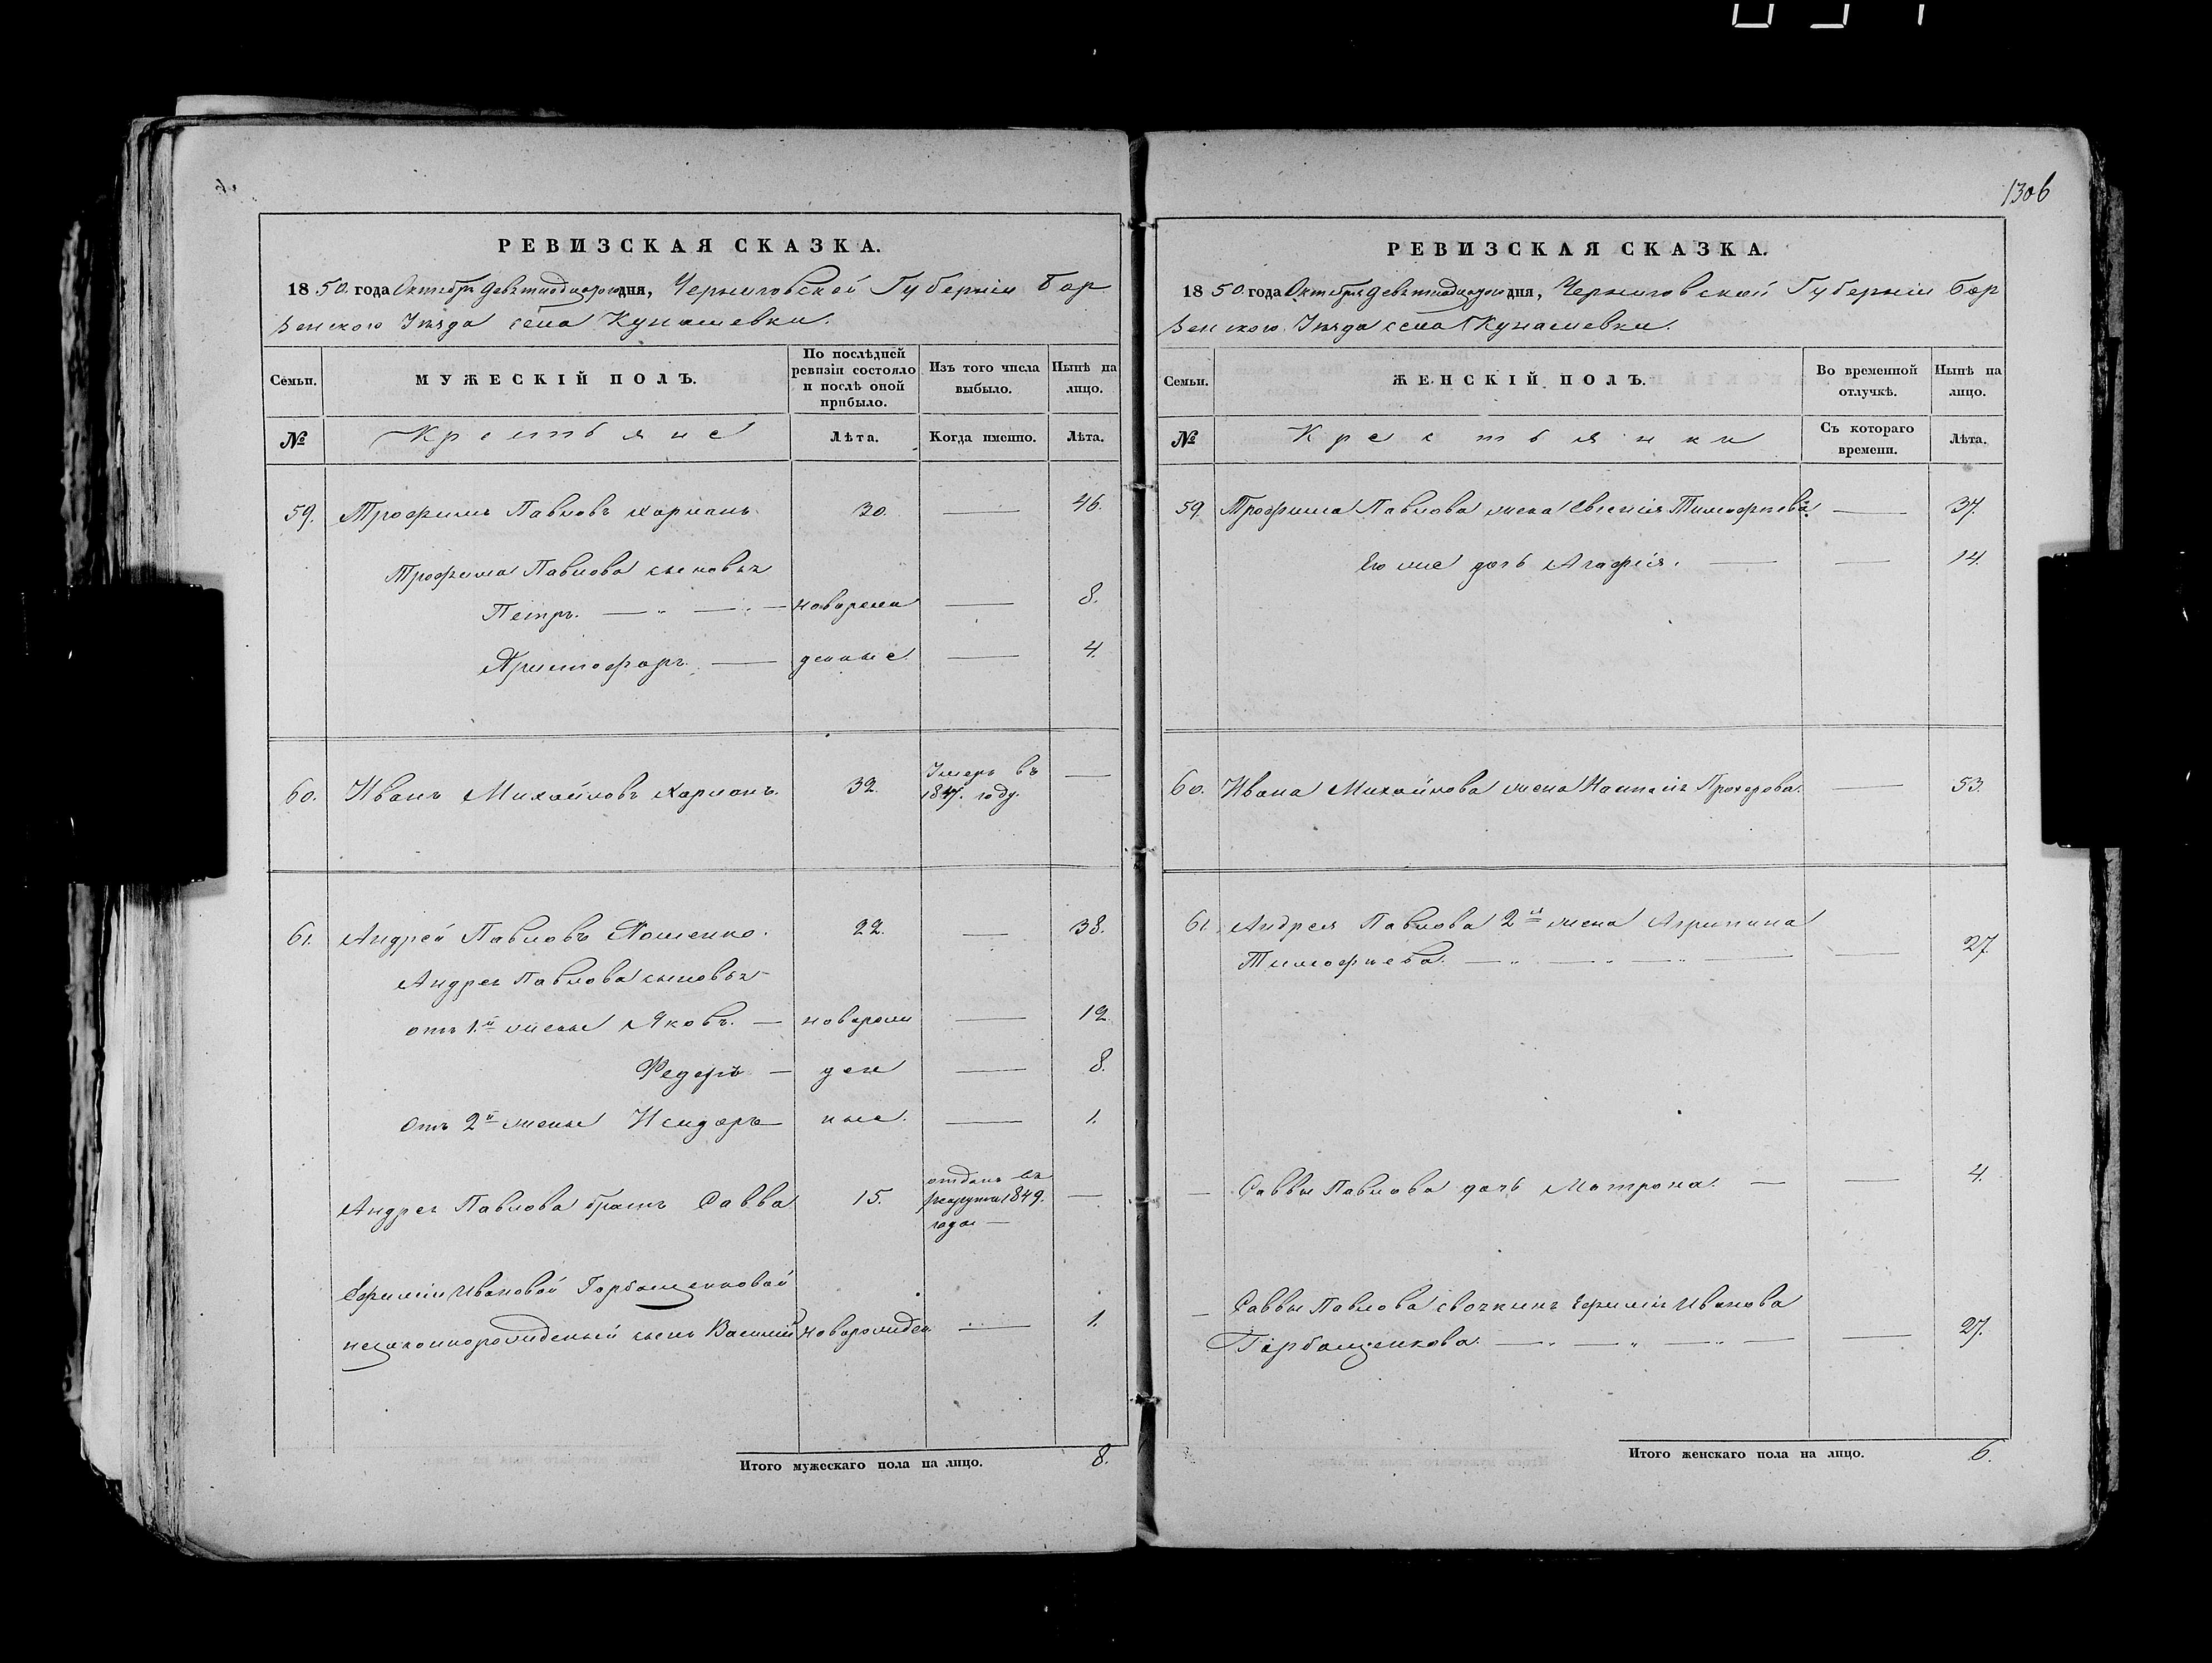 1306
РЕВИЗСКАЯ СКАЗКА.
1850. года Октября девятнадцатого дня, Черниговской Губерніи Бор
зенскаго Уѣзда села Кунашевки.
Семьи.
МУЖЕСКІЙ ПОЛЪ.
По послѣдней ревизіи состояло и послѣ оной прибыло.
Изъ того числа выбыло.
Нынѣ на лицо.
№
Крестьяне
Лѣта.
Когда именно.
Лѣта.
59. Трофимъ Павловъ Харманъ 30. — 46.
Трофима Павлова сыновья
Петръ. — „ — „ — новорож — 8.
Христофоръ. — денные — 4.
60. Иванъ Михайловъ Харманъ. 32. Умеръ въ —
1847. году.
61. Андрей Павловъ 22. — 38.
Андрея Павлова сыновья
отъ 1й жены Яковъ. — новорож — 12.
Федоръ — ден — 8.
отъ 2й жены Исидоръ ные. — 1.
отданъ въ
Андрея Павлова братъ Савва 15. рекруты 1849. —
года —
Ефиміи Ивановой Горбащенковой
незаконнорожденый сынъ Василій новорожден. — 1.
Итого мужескаго пола на лицо. 8.
РЕВИЗСКАЯ СКАЗКА.
1850. года Октября девятнадцатого дня, Черниговской Губерніи Бор
зенскаго Уѣзда села Кунашевки.
Семьи.
ЖЕНСКІЙ ПОЛЪ.
Во временной отлучкѣ.
Нынѣ на лицо.
№
Крестьянки
Съ котораго времени.
Лѣта.
59. Трофима Павлова жена Евгенія Тимофѣева — 37.
Его же дочь Агафія. — — 14.
60. Ивана Михайлова жена Наталія Прохорова. — 53.
61. Андрея Павлова 2я жена Агрипина
Тимофѣева. — „ — „ — „ — — 27.
— Саввы Павлова дочь Матрона. — — 4.
— Саввы Павлова Ефимія Иванова
Горбащенкова. — „ — „ — „ — — 27.
Итого женскаго пола на лицо. 6.